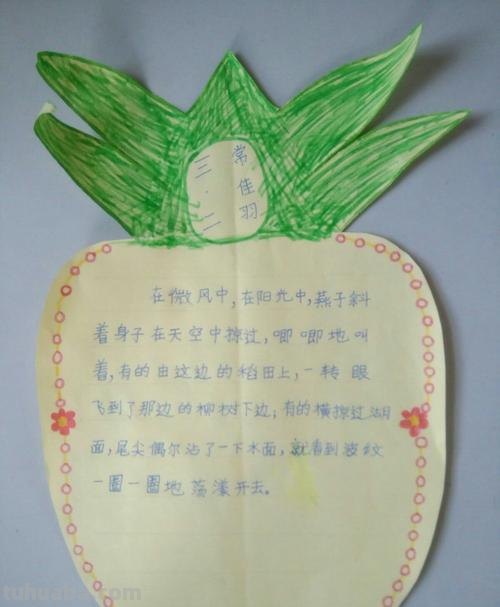 三.二
常佳羽
在微风中,在阳光中,燕子斜
着身子在天空中掠过,唧唧地叫
着,有的由这边的稻田上,一转眼
飞到了那边的柳树下边;有的横掠过湖
面,尾尖偶尔沾了一下水面,就看到波纹
一圈一圈地荡漾开去。
tuhuaba.com